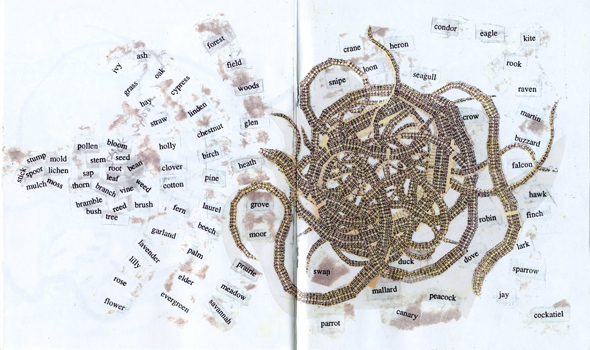 forest
ash
ivy
oak
field
grass
cypress
woods
hay
linden
straw
glen
chestnut
pollen
bloom
holly
stump
mold
stem
seed
birch
heath
spoor
lichen
sap
root
bean
clover
leaf
pine
mulch
moss
thorn
branch
vine
weed
cotton
bramble
reed
brush
fern
laurel
grove
bush
tree
beech
moor
garland
lavender
palm
lilly
prairie
rose
elder
meadow
flower
evergreen
savannah
condor
eagle
kite
crane
heron
loon
rook
snipe
seagull
raven
crow
martin
buzzard
falcon
hawk
robin
finch
lark
duck
dove
swan
sparrow
mallard
peacock
jay
parrot
canary
cockatiel